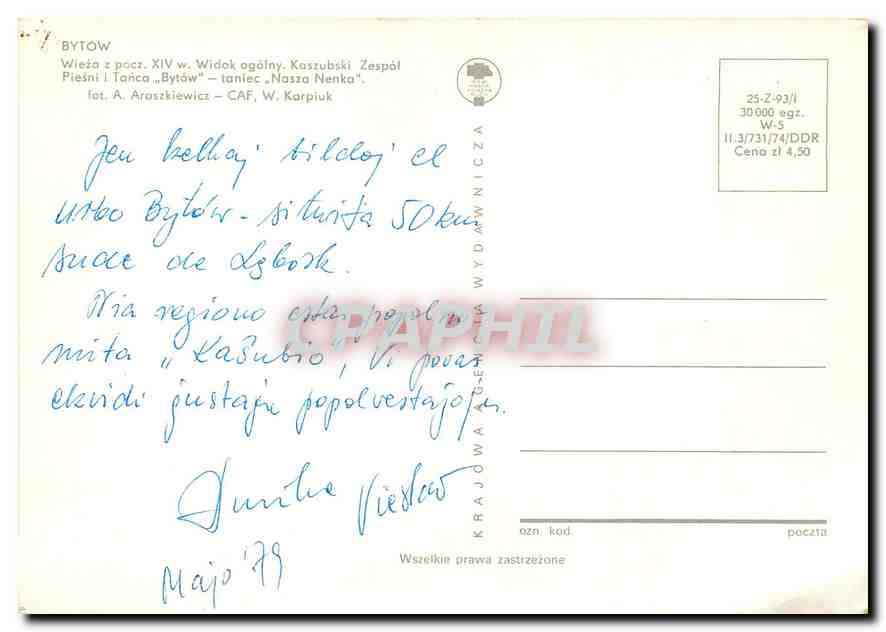 BYTÓW
Wieża z pocz. XIV w. Widok ogólny. Kaszubski Zespół
Pieśni i Tańca „Bytów" — taniec „Nasza Nenka".
fot. A. Araszkiewicz — CAF, W. Karpiuk
25-Z-93/I
30 000 egz.
W-5
II.3/731/74/DDR
Cena zł 4,50
Jen kelkaj bildoj el
urbo Bytów - situita 50 km
sude de Lębork.
Nia regiono estas popolno
mita „Kaŝubio", Vi povas
ekvidi ĝustajn popolvestajojn.
Amike Vieslav
Majo '79
KRAJOWA AGENCJA WYDAWNICZA
CPAPHIL
ozn. kod.
poczta
Wszelkie prawa zastrzeżone